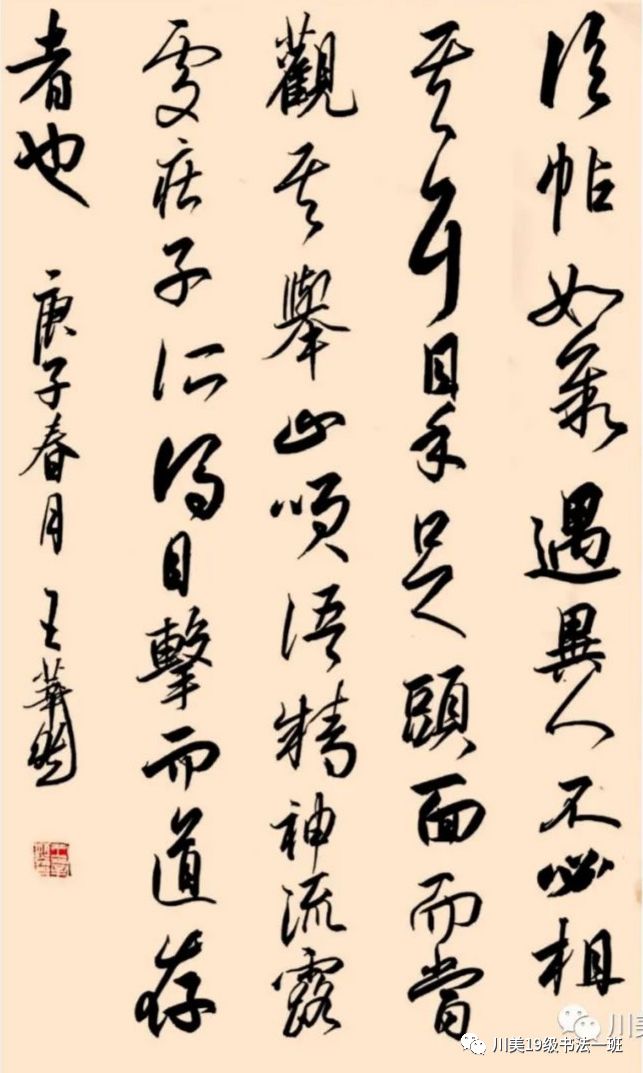 臨帖如驟遇異人不必相
其耳目手足頭面而當
觀其舉止咲語精神流露
處庄子所謂目擊而道存
者也 庚子春月 王華
川美
川美19级书法一班